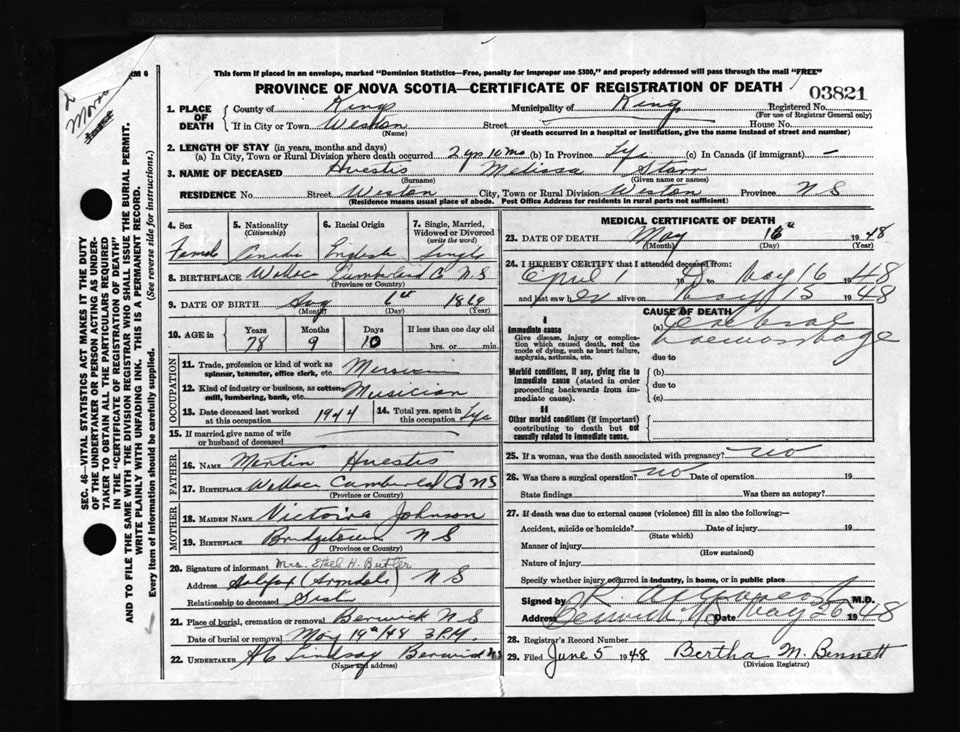 RM 6
This form if placed in an envelope, marked "Dominion Statistics—Free, penalty for improper use $300," and properly addressed will pass through the mail "FREE"
PROVINCE OF NOVA SCOTIA—CERTIFICATE OF REGISTRATION OF DEATH 03821
1. PLACE OF DEATH County of Kings Municipality of Kings Registered No.
(For use of Registrar General only)
If in City or Town Weston Street House No.
(Name) (If death occurred in a hospital or institution, give the name instead of street and number)
2. LENGTH OF STAY (in years, months and days)
(a) In City, Town or Rural Division where death occurred 2 yrs 10 mo (b) In Province (c) In Canada (if immigrant) —
3. NAME OF DECEASED Huestis Melissa Starr
(Surname) (Given name or names)
RESIDENCE No. Street Weston City, Town or Rural Division Weston Province N S
(Residence means usual place of abode. Post Office Address for residents in rural parts not sufficient)
4. Sex 5. Nationality 6. Racial Origin 7. Single, Married, Widowed or Divorced
(Citizenship) (write the word)
Female Canadian English Single
8. BIRTHPLACE Wallace Cumberland Co N.S
(Province or Country)
9. DATE OF BIRTH Aug 6th 1869
(Month) (Day) (Year)
10. AGE in Years Months Days If less than one day old
78 9 10 hrs. or min.
OCCUPATION
11. Trade, profession or kind of work as spinner, teamster, office clerk, etc. Musician
12. Kind of industry or business, as cotton mill, lumbering, bank, etc. Musician
13. Date deceased last worked at this occupation 1944 14. Total yrs. spent in this occupation
15. If married give name of wife or husband of deceased
FATHER
16. NAME Martin Huestis
17. BIRTHPLACE Wallace Cumberland Co NS
(Province or Country)
MOTHER
18. MAIDEN NAME Victoria Johnson
19. BIRTHPLACE Bridgetown N S
(Province or Country)
20. Signature of informant Mrs. Ethel H. Butler
Address Halifax (Armdale) N S
Relationship to deceased Sist
21. Place of burial, cremation or removal Berwick N S
Date of burial or removal May 19th/48 3 P.M.
22. UNDERTAKER Lindsay Berwick NS
(Name and address)
MEDICAL CERTIFICATE OF DEATH
23. DATE OF DEATH May 16th 1948
(Month) (Day) (Year)
24. I HEREBY CERTIFY that I attended deceased from:
April 1 19 to May 16 1948
and last saw her alive on May 15 1948
CAUSE OF DEATH
I
Immediate cause (a) Cerebral haemorrhage
Give disease, injury or complication which caused death, not the mode of dying, such as heart failure, asphyxia, asthenia, etc.
due to
Morbid conditions, if any, giving rise to immediate cause (stated in order proceeding backwards from immediate cause).
(b)
due to
(c)
II
Other morbid conditions (if important) contributing to death but not causally related to immediate cause.
25. If a woman, was the death associated with pregnancy? no
26. Was there a surgical operation? no Date of operation 19
State findings Was there an autopsy?
27. If death was due to external cause (violence) fill in also the following:—
Accident, suicide or homicide? Date of injury 19
(State which)
Manner of injury
(How sustained)
Nature of injury
Specify whether injury occurred in industry, in home, or in public place
Signed by M.D.
Address Berwick, NS Date May 26 1948
28. Registrar's Record Number
29. Filed June 5 1948 Bertha M. Bennett
(Division Registrar)
SEC. 46—VITAL STATISTICS ACT MAKES IT THE DUTY
OF THE UNDERTAKER OR PERSON ACTING AS UNDER-
TAKER TO OBTAIN ALL THE PARTICULARS REQUIRED
IN THE "CERTIFICATE OF REGISTRATION OF DEATH"
AND TO FILE THE SAME WITH THE DIVISION REGISTRAR WHO SHALL ISSUE THE BURIAL PERMIT.
WRITE PLAINLY WITH UNFADING INK. THIS IS A PERMANENT RECORD.
Every item of information should be carefully supplied. (See reverse side for instructions.)